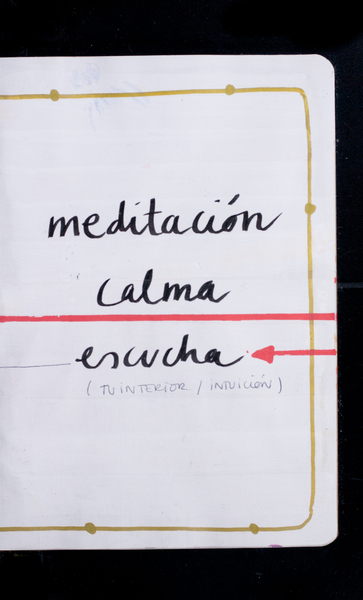 meditación
calma
escucha
( TU INTERIOR / INTUICIÓN )